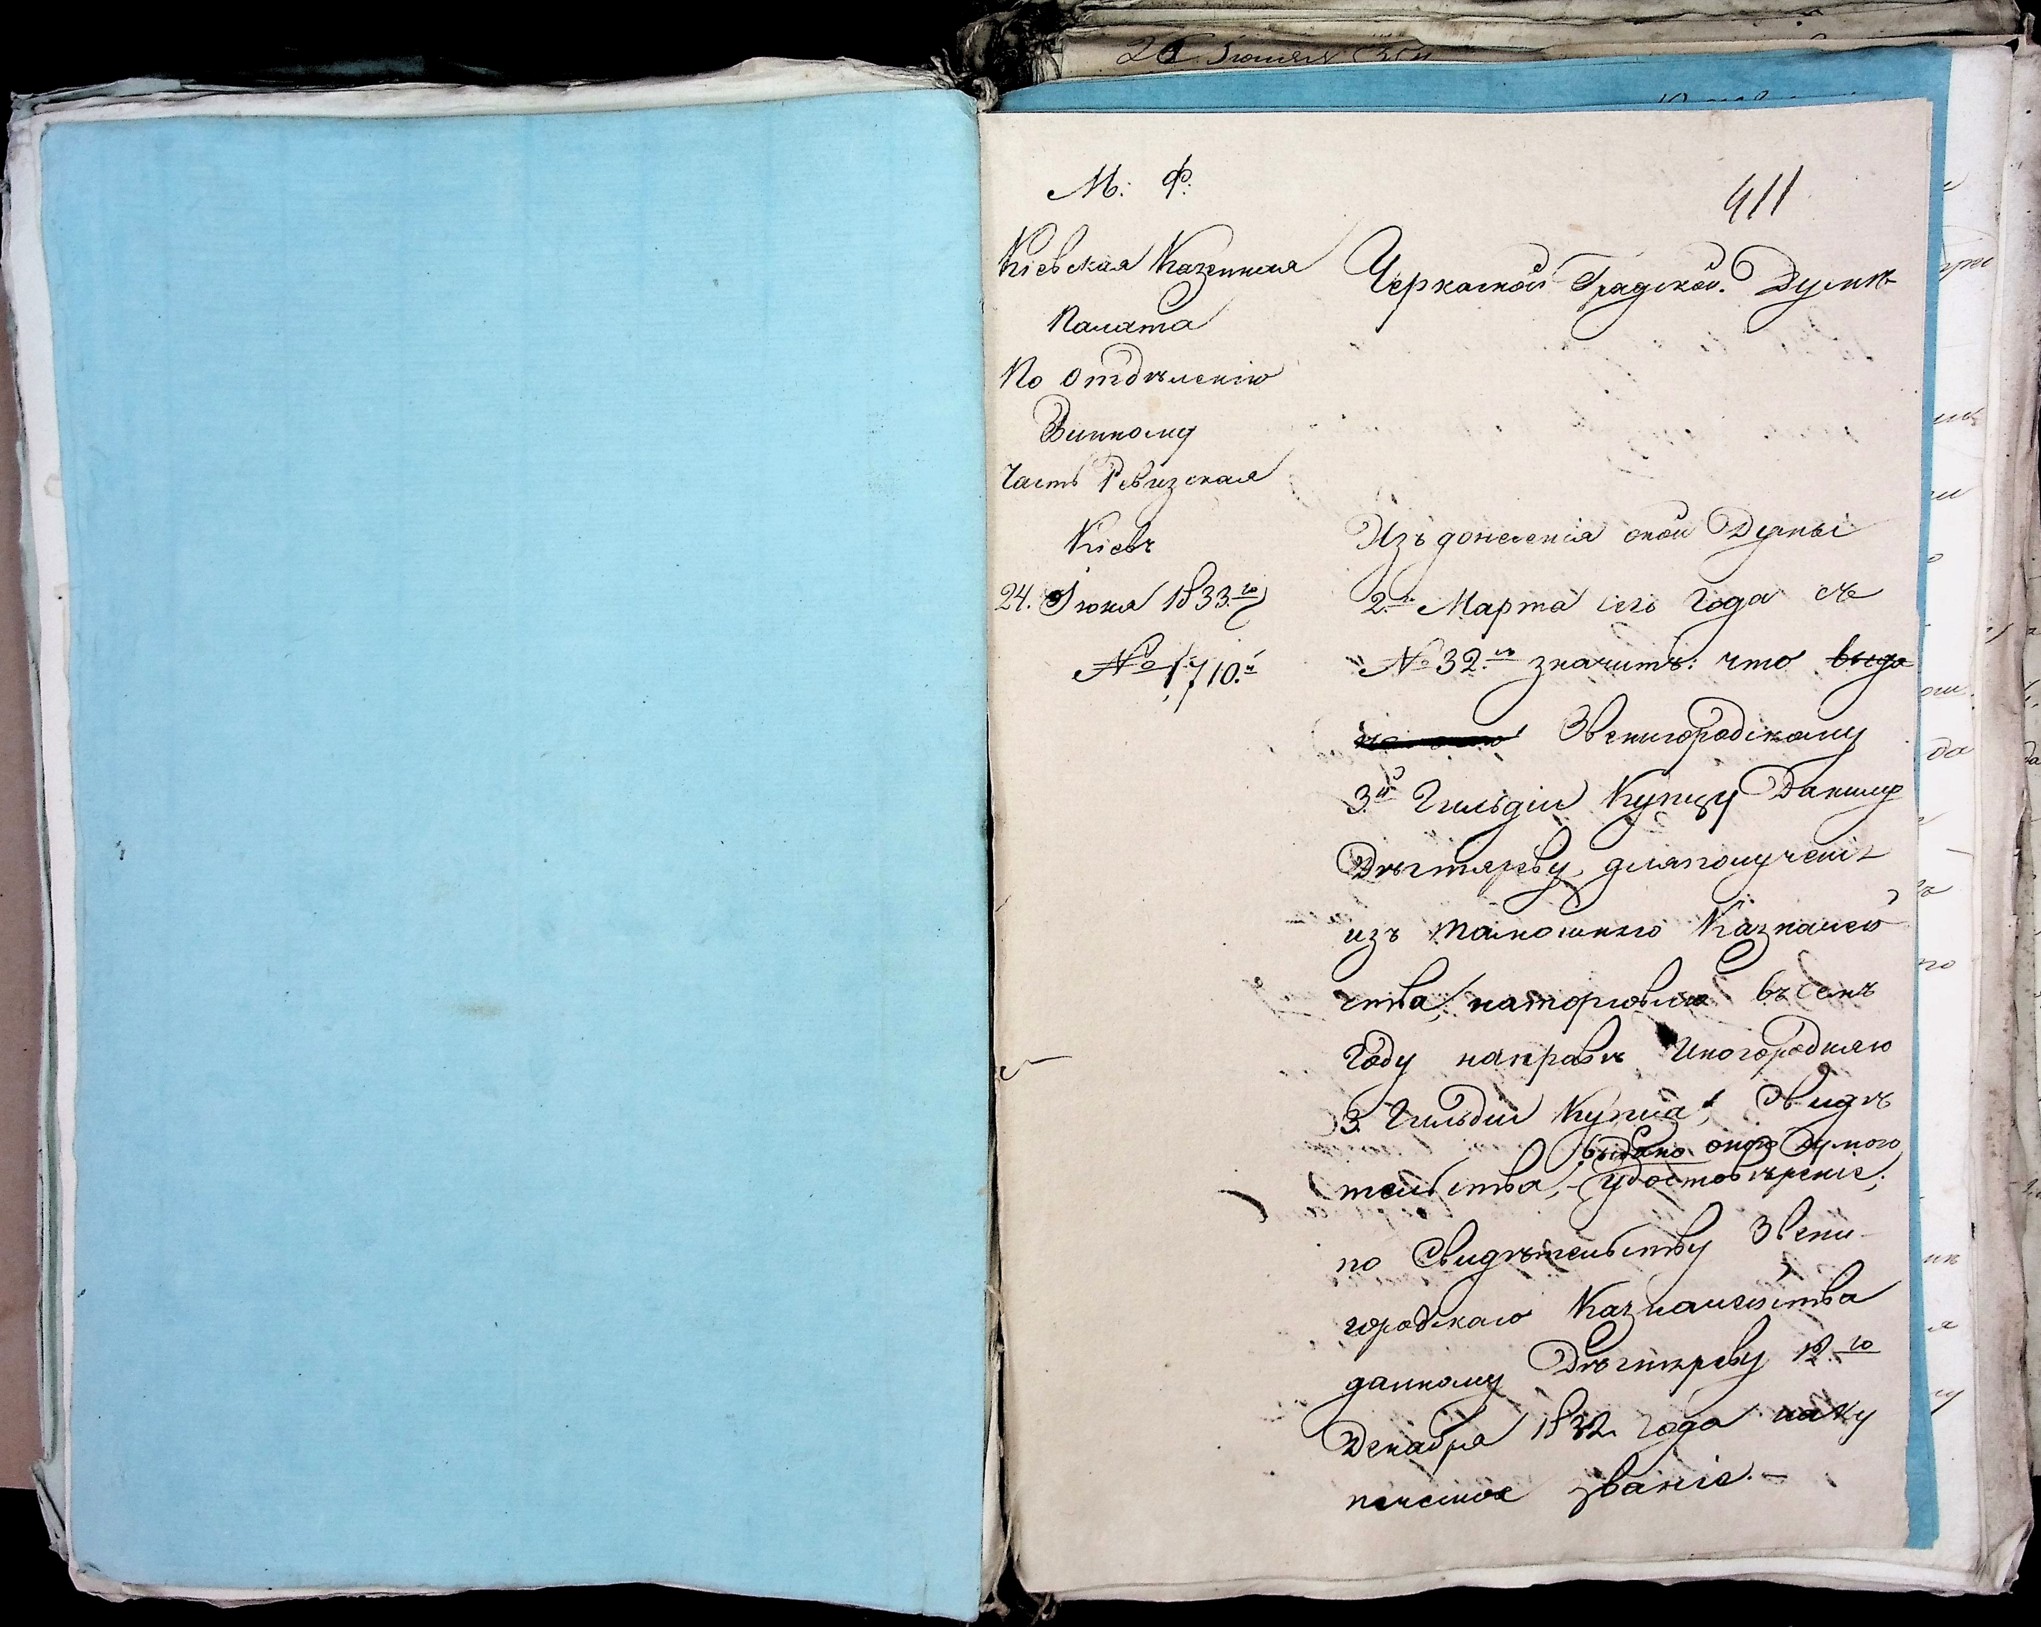 М: Ф:
411
Кіевская Казенная
Палата
По отдѣленію
Винному
Часть Ревизская
Кіевъ
24. Іюня 1833.го
№ 1710.й
Черкаской Градской Думѣ
Изъ донесенія оной Думы
2.го Марта сего года съ
№ 32.мъ значитъ: что выда
Звенигородскому
3.й Гильдіи Купцу Данилу
Дѣгтяреву, для полученія
изъ тамошнего Казначей
ства, на торговлю въ семъ
году на правѣ Иногородняго
3. Гильдіи Купца, Свидѣ
выдано оною Думою
тельства, удостовѣреніе,
по Свидѣтельству Звени-
городскаго Казначейства
данному Дѣгтяреву 12.го
Декабря 1832 года на ку
печеское званіе.-